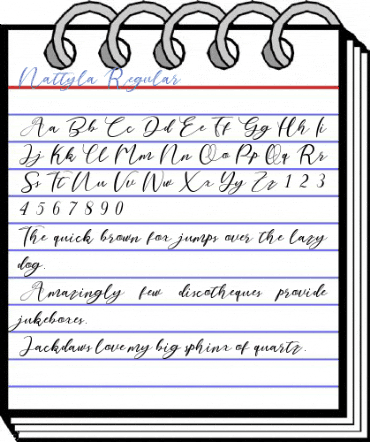 Nattyla Regular
Aa Bb Cc Dd Ee Ff Gg Hh Ii
Jj Kk Ll Mm Nn Oo Pp Qq Rr
Ss Tt Uu Vv Ww Xx Yy Zz 1 2 3
4 5 6 7 8 9 0
The quick brown fox jumps over the lazy
dog.
Amazingly few discotheques provide
jukeboxes.
Jackdaws love my big sphinx of quartz.